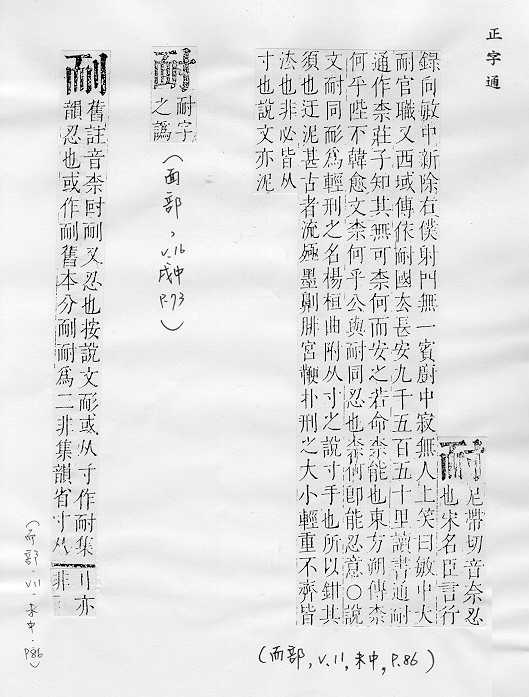 正字通
耐
尼帶切音奈忍
也宋名臣言行
錄向敏中新除右僕射門無一賓廚中寂無人上笑曰敏中大
耐官職又西域傳依耐國去長安九千五百五十里讀書通耐
通作柰莊子知其無可柰何而安之若命柰能也東方朔傳柰
何乎陛下韓愈文柰何乎公與耐同忍也柰何卽能忍意○說
文耐同耏爲輕刑之名楊桓曲附从寸之說寸手也所以鉗其
須也迂泥甚古者流殛墨劓腓宮鞭扑刑之大小輕重不齊皆
法也非必皆从
寸也說文亦泥
(而部, V.11, 未中, P.86)
耐字
之譌
(面部, V.16 戌中 P.93)
耏
舊註音柰同耐又忍也按說文耏或从寸作耐集
韻忍也或作耏舊本分耏耐爲二非集韻省寸从
刂亦
非
(而部. V.11. 未中. P.86)